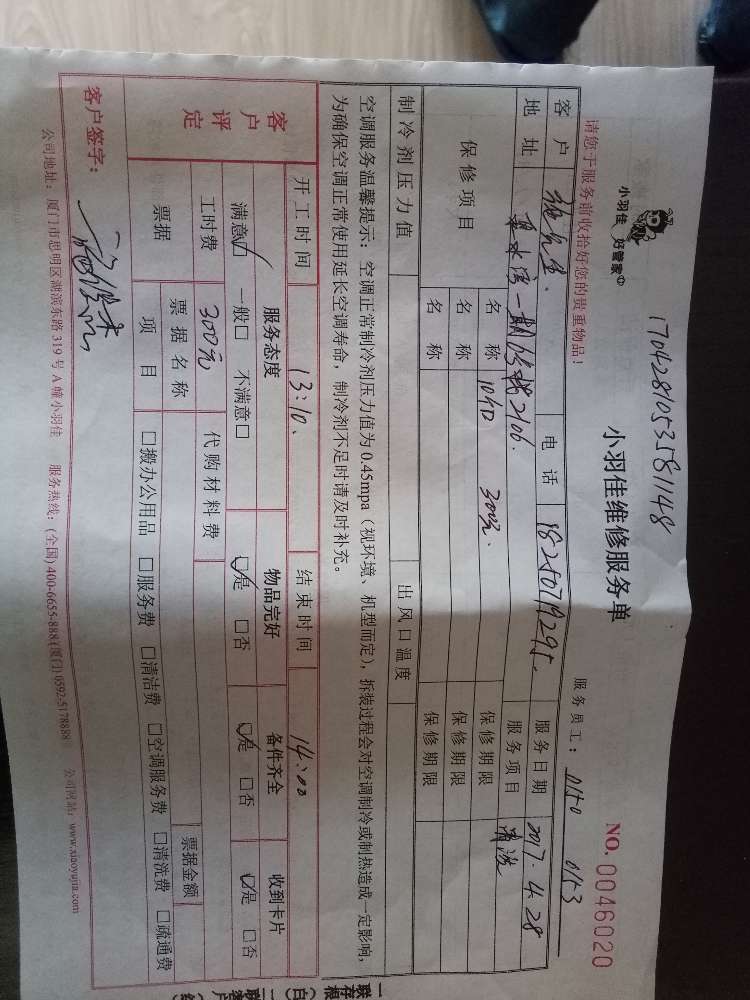 1704281053581148
小羽佳 好管家
小羽佳维修服务单
NO. 0046020
请您于服务前收拾好您的贵重物品!
服务员工: 0150 0153
客户 电话 18250719295. 服务日期 2017.4.28
地址 一期 2106. 服务项目 清洗
保修项目 名称 300元. 保修期限
名称 保修期限
名称 保修期限
制冷剂压力值 出风口温度
空调服务温馨提示: 空调正常制冷剂压力值为0.45mpa (视环境、机型而定), 拆装过程会对空调制冷或制热造成一定影响,
为确保空调正常使用延长空调寿命, 制冷剂不足时请及时补充。
开工时间 13:10. 结束时间 14:00
客户评定 服务态度 物品完好 备件齐全 收到卡片
满意☑ 一般□ 不满意□ ☑是 □否 ☑是 □否 ☑是 □否
工时费 300元 代购材料费
票据 票据名称 票据金额
项目 □搬办公用品 □服务费 □清洁费 □空调服务费 □清洗费 □疏通费
客户签字:
公司地址: 厦门市思明区湖滨东路319号A幢小羽佳 服务热线: (全国) 400-6655-888 (厦门) 0592-5178888 公司网站: www.xiaoyujia.com
一联存根(白)
二联客户